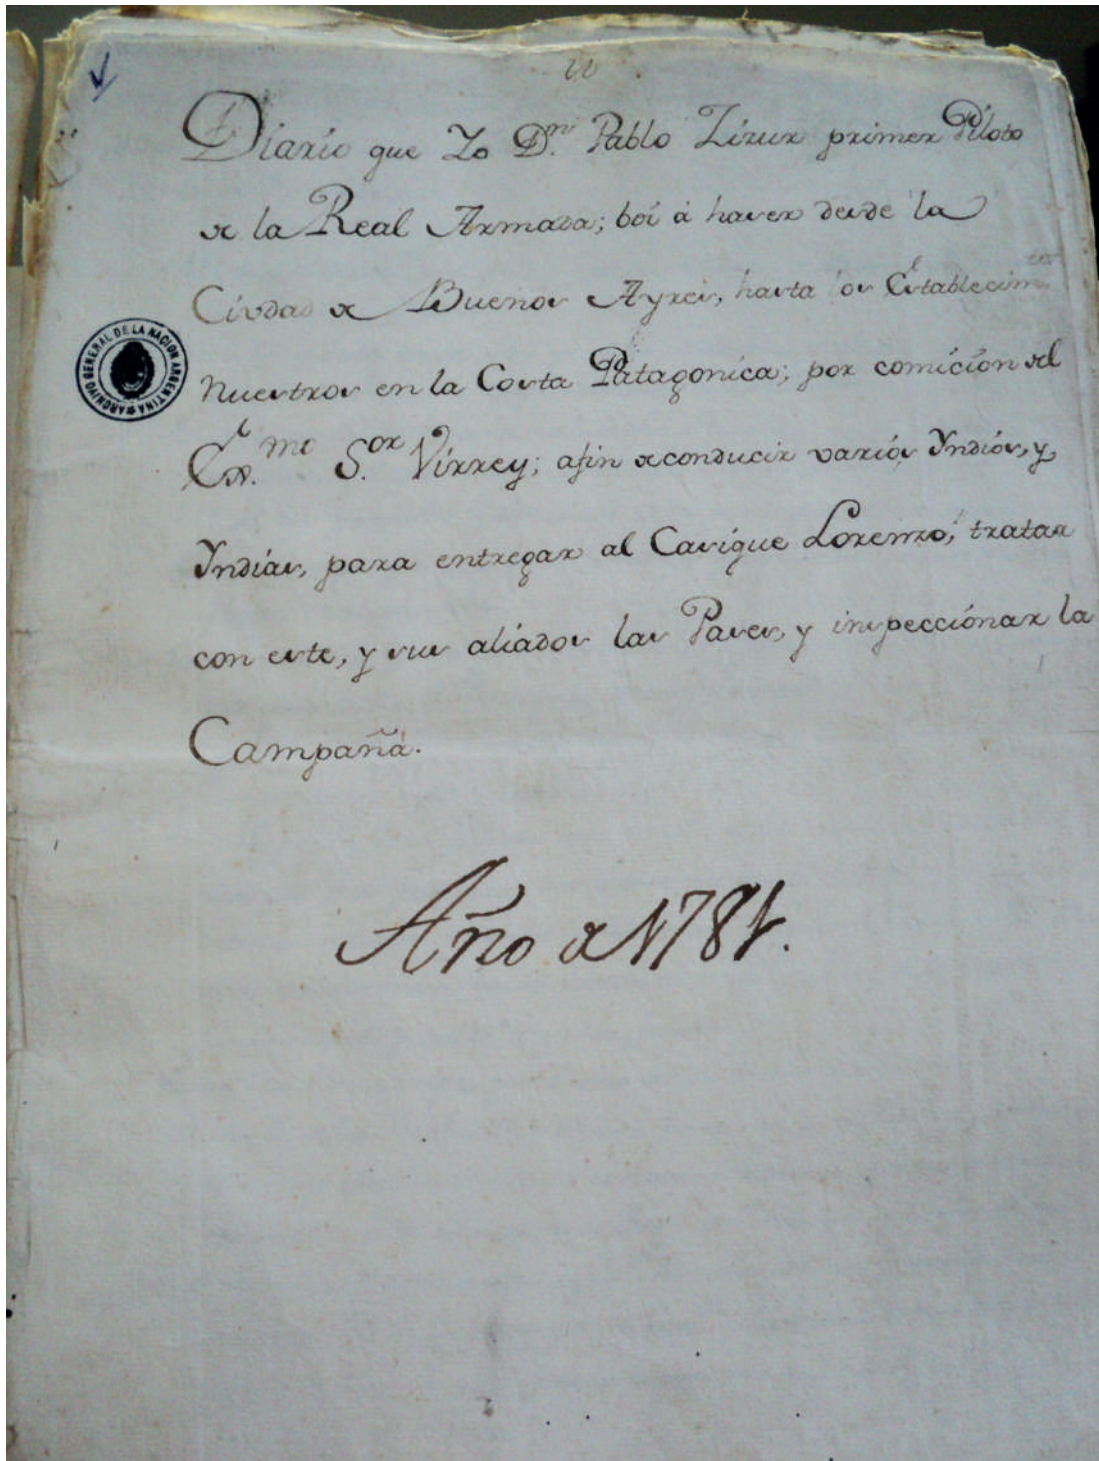 Diario que Yo Dn. Pablo Zizur primer Piloto
de la Real Armada; boi á hacer desde la
Ciudad de Buenos Ayres, hasta los Establecim.tos
nuestros en la Costa Patagonica; por comicion del
Ex.mo S.or Virrey; afin de conducir varios Yndios, y
Yndias, para entregar al Cacique Lorenzo; tratar
con este, y sus aliados las Paces, y inspeccionar la
Campaña.
ARCHIVO GENERAL DE LA NACION ARGENTINA
Año de 1781.